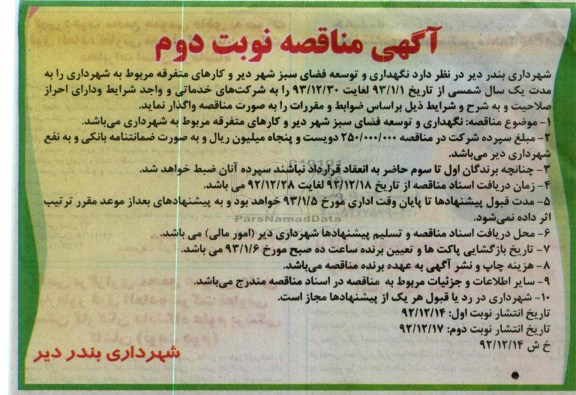 آگهی مناقصه نوبت دوم
شهرداری بندر دیر در نظر دارد نگهداری و توسعه فضای سبز شهر دیر و کارهای متفرقه مربوط به شهرداری را به
مدت یک سال شمسی از تاریخ ۹۳/۱/۱ لغایت ۹۳/۱۲/۳۰ را به شرکت‌های خدماتی و واجد شرایط ودارای احراز
صلاحیت و به شرح و شرایط ذیل براساس ضوابط و مقررات را به صورت مناقصه واگذار نماید.
۱- موضوع مناقصه: نگهداری و توسعه فضای سبز شهر دیر و کارهای متفرقه مربوط به شهرداری می‌باشد.
۲- مبلغ سپرده شرکت در مناقصه ۲۵۰/۰۰۰/۰۰۰ دویست و پنجاه میلیون ریال و به صورت ضمانتنامه بانکی و به نفع
شهرداری دیر می‌باشد.
۳- چنانچه برندگان اول تا سوم حاضر به انعقاد قرارداد نباشند سپرده آنان ضبط خواهد شد.
۴- زمان دریافت اسناد مناقصه از تاریخ ۹۲/۱۲/۱۸ لغایت ۹۲/۱۲/۲۸ می باشد.
۵- مدت قبول پیشنهادها تا پایان وقت اداری مورخ ۹۳/۱/۵ خواهد بود و به پیشنهادهای بعداز موعد مقرر ترتیب
اثر داده نمی‌شود.
ParsNamadData
۶- محل دریافت اسناد مناقصه و تسلیم پیشنهادها شهرداری دیر (امور مالی) می باشد.
۷- تاریخ بازگشایی پاکت ها و تعیین برنده ساعت ده صبح مورخ ۹۳/۱/۶ می باشد.
۸- هزینه چاپ و نشر آگهی به عهده برنده مناقصه می‌باشد.
۹- سایر اطلاعات و جزئیات مربوط به مناقصه در اسناد مناقصه مندرج می‌باشد.
۱۰- شهرداری در رد یا قبول هر یک از پیشنهادها مجاز است.
تاریخ انتشار نوبت اول: ۹۲/۱۲/۱۴
تاریخ انتشار نوبت دوم: ۹۲/۱۲/۱۷
خ ش ۹۲/۱۲/۱۴
شهرداری بندر دیر